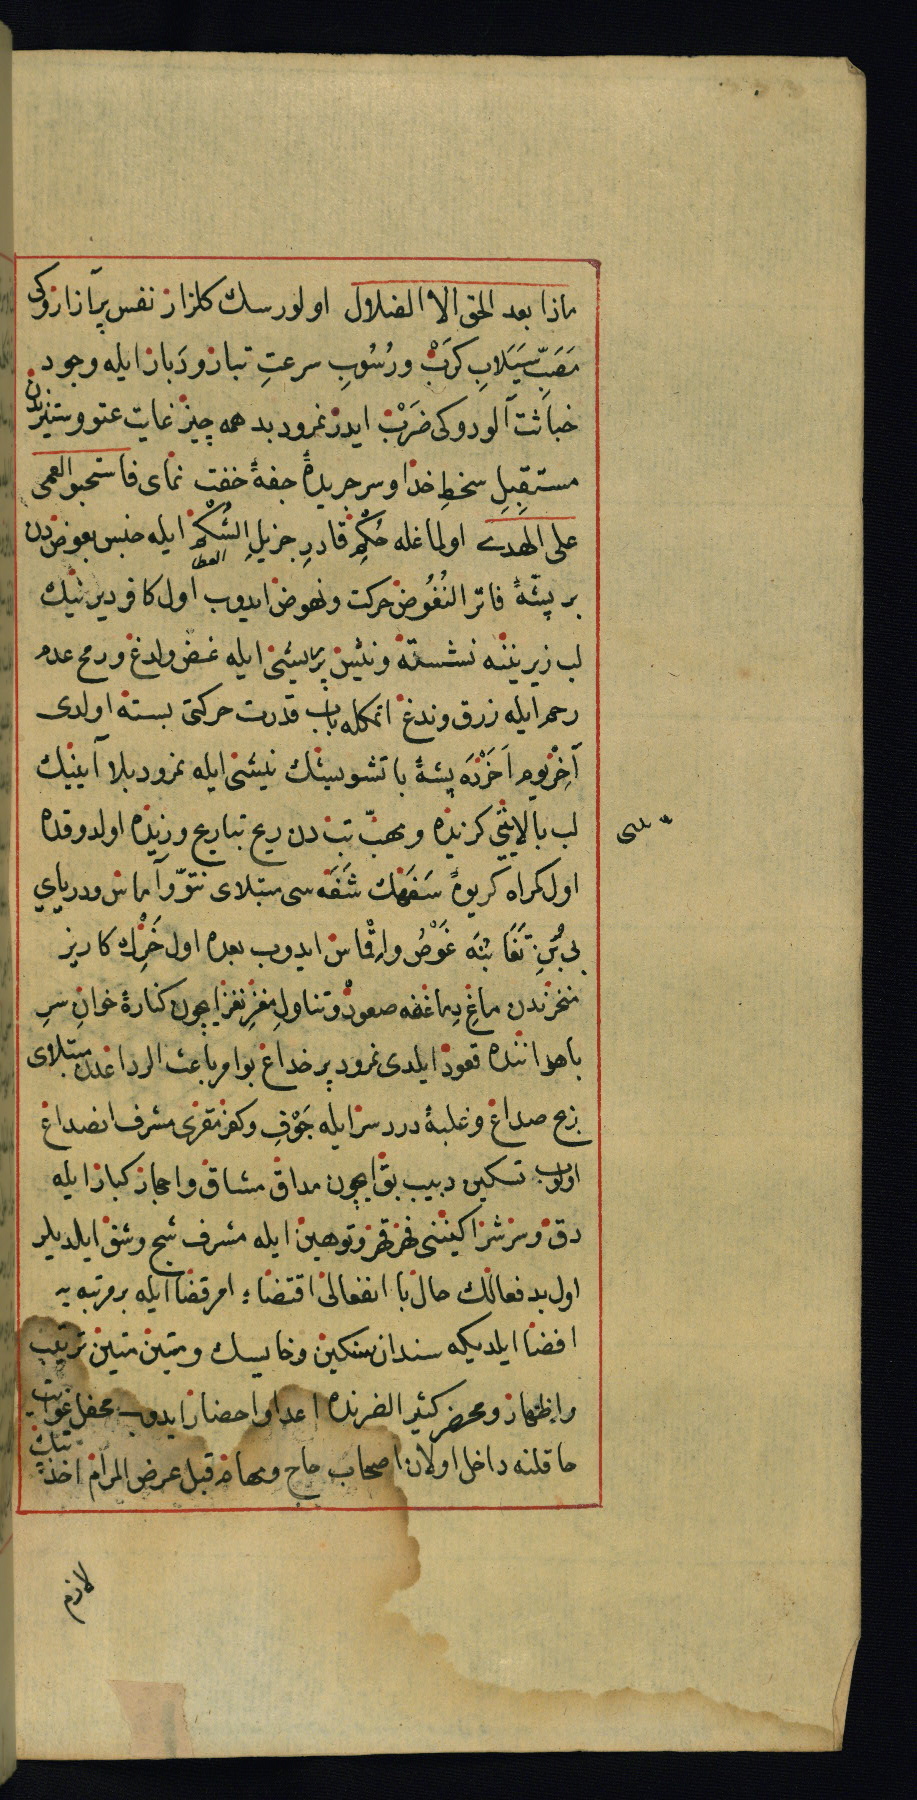 ماذا بعد الحق الا الضلال اولورسك كلزار نفس پرآزاروكی
مَصَبِّ سَیَلابِ كَرَبْ ورُسُوبِ سرعتِ تبار ودَبار ایله وجود
خباثت آلودوكی ضَرَبْ ایدر نمرود بد همه چیز غایت عتو وستیزندن
مستقبِلِ سخطِ خدا وسر جریدهٔ جفهٔ خفت نمای فاستحبو العمی
علی الهدے اولماغله حُكْمِ قادرِ جزیلِ الشُكْم ایله جنس بعوض‌دن
العطا
بر پشّهٔ فاتر النُغُوض حركت ونهوض ایدوب اول كافر دیرنیك
لب زیریننه نشسته ونیش پر سیئنی ایله غض ولدغ ورمح عدم
رحم ایله زرق وندغ اتمكله باب قدرت حركتی بسته اولدی
آخِرْ یوم اَخَرْدَه پشهٔ با تشویشك نیشنی ایله نمرود بلا آیینیك
لب بالایی كزنده ومهبّ تب دن ریح تباریح وزنده اولدوقده
سی
اول كمراه كریوهٔ سَفَهك شَفَه سی مبتلای نتوّ وآماس ودریای
بی بُنِ تَفَابُنَه غَوْص وارِتْماس ایدوب بعده اول خَرِك كاریز
منخرندن ماغِ دِماغنه صعود وتناولِ مغزِ نغز ایچون كنارهٔ خوانِ سرِ
باهوا سنده قعود ایلدی نمرود پر خداع بو امر باعث الرداعدن مبتلای
زج صداع وغلبهٔ درد سر ایله جَوْفِ وكفر مقرى مشرف انصداع
اولوب تسكین دبیب بق ایچون مداق مشاق واحجار كبار ایله
دق وسر شرّ اكینی فهر قهر وتوهین ایله مشرف شج وشق ایلدیلر
اول بد فعالك حال با انفعالی اقتضاء امر قضا ایله بر مرتبه یه
افضا ایلدیكه سندان سنكین وخایسك ومتین متین ترتیب
واظهار ومحضر كثیر الضرنده اعدا واحضار ایدوب محفل غوایت
حافلنه داخل اولان اصحاب حاج ومهام قبل عرض المرام اخذ
لازم